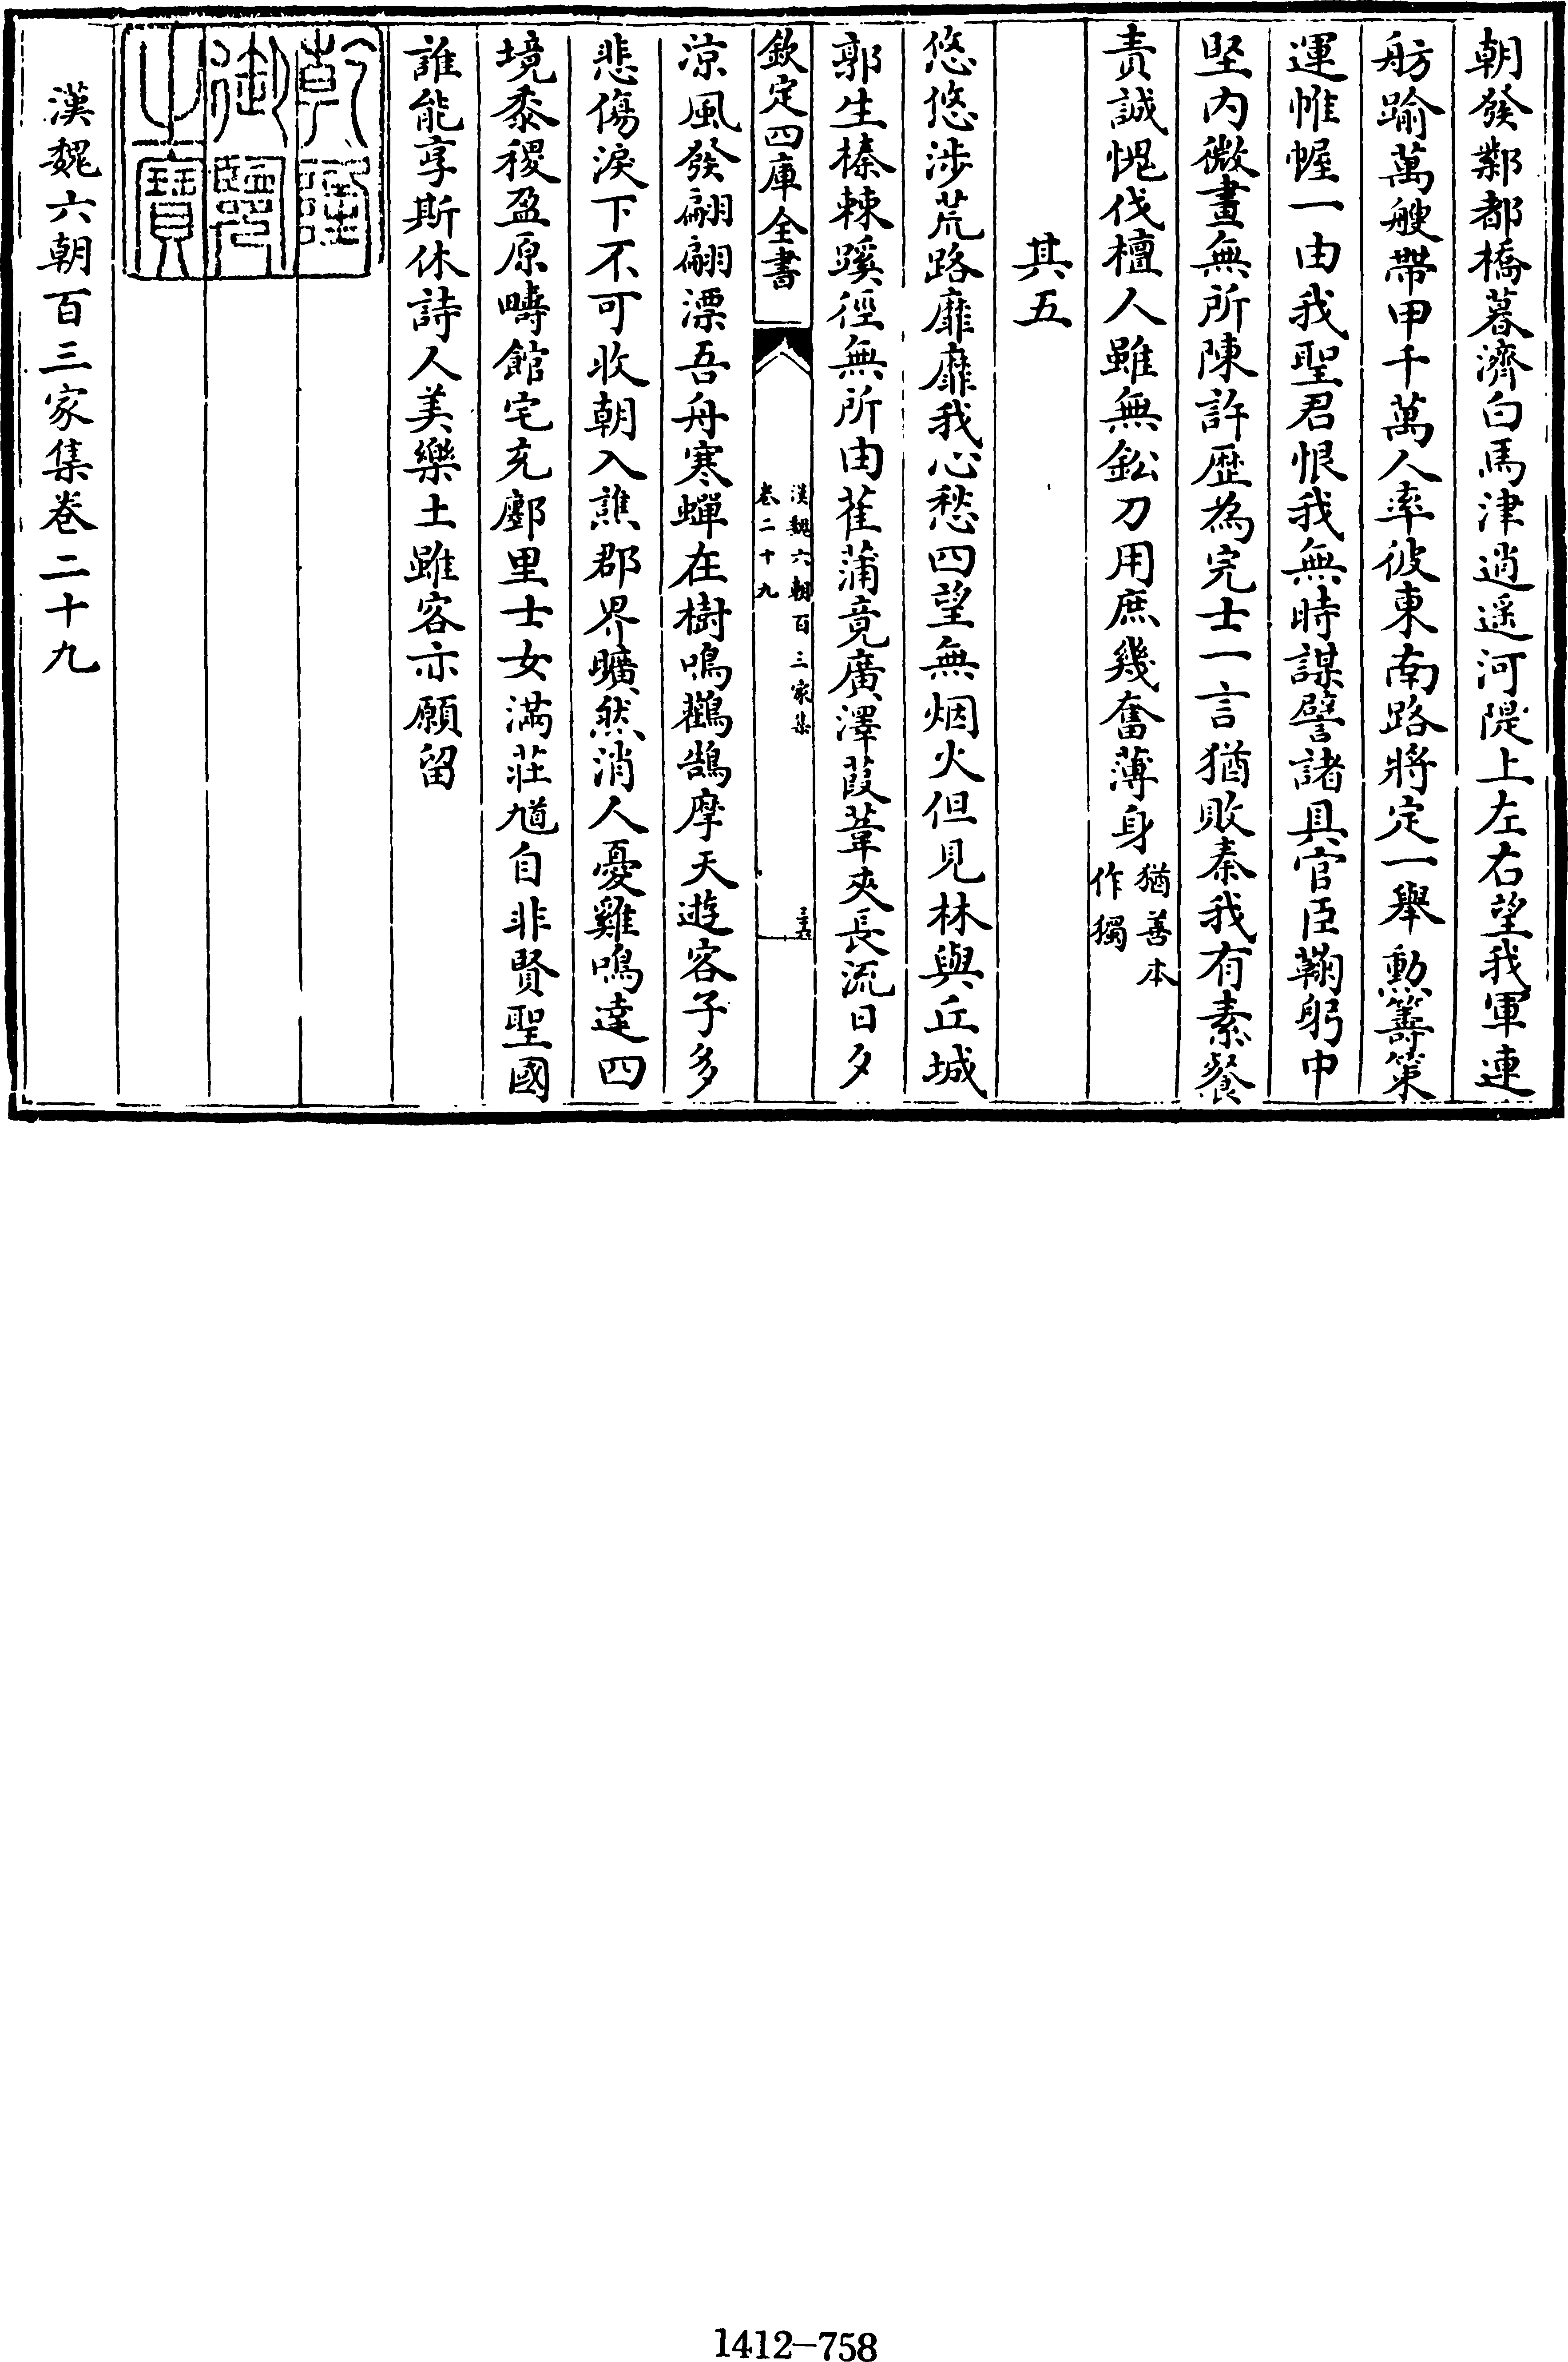 朝發鄴都橋暮濟白馬津逍遥河隄上左右望我軍連
舫踰萬艘帶甲千萬人率彼東南路將定一舉勲籌策
運帷幄一由我聖君恨我無時謀譬諸具官臣鞠躬中
堅内微畫無所陳許歴為完士一言猶敗秦我有素餐
責誠愧伐檀人雖無鈆刀用庶幾奮薄身猶善本作獨
其五
悠悠涉荒路靡靡我心愁四望無烟火但見林與丘城
郭生榛棘蹊徑無所由雚蒲竟廣澤葭葦夾長流日夕
欽定四庫全書
漢魏六朝百三家集
卷二十九
涼風發翩翩漂吾舟寒蟬在樹鳴鸛鵠摩天遊客子多
悲傷淚下不可收朝入譙郡界曠然消人憂雞鳴達四
境黍稷盈原疇館宅充鄽里士女滿莊馗自非賢聖國
誰能享斯休詩人美樂土雖客亦願留
乾隆御覽之寶
漢魏六朝百三家集卷二十九
1412-758